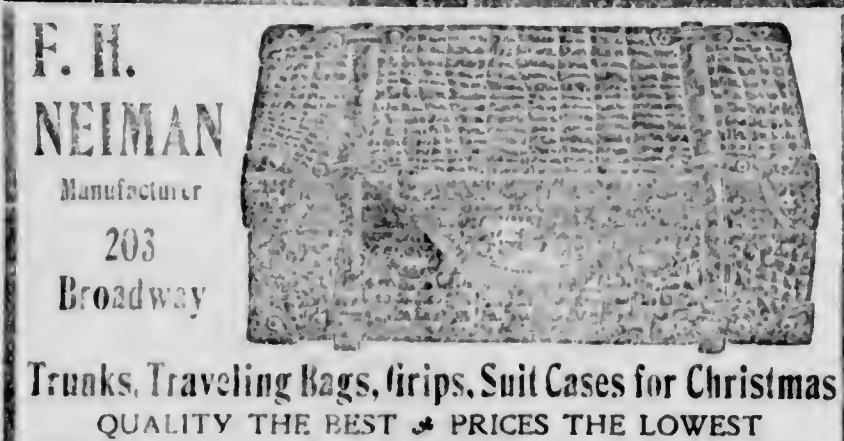 F. H.
NEIMAN
Manufacturer
203
Broadway
Trunks, Traveling Bags, Grips, Suit Cases for Christmas
QUALITY THE BEST PRICES THE LOWEST